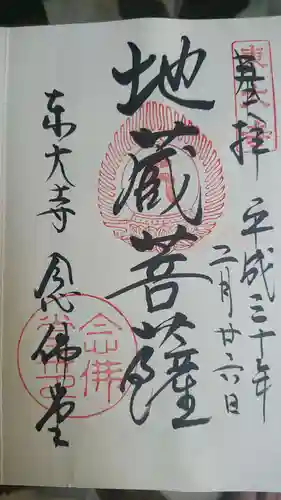 奉拝
平成三十年
二月廿六日
地蔵菩薩
東大寺 念佛堂